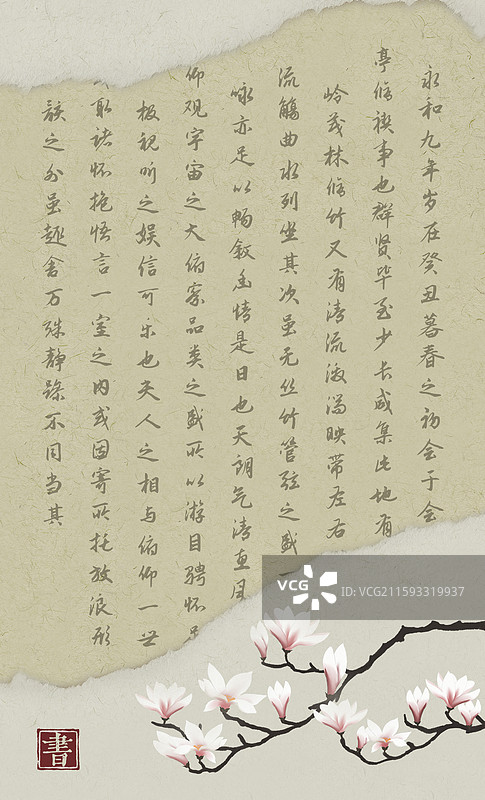 永和九年岁在癸丑暮春之初会于会
亭修禊事也群贤毕至少长咸集此地有
岭茂林修竹又有清流激湍映带左右
流觞曲水列坐其次虽无丝竹管弦之盛一
咏亦足以畅叙幽情是日也天朗气清惠风
仰观宇宙之大俯察品类之盛所以游目骋怀足
极视听之娱信可乐也夫人之相与俯仰一世
取诸怀抱悟言一室之内或因寄所托放浪形
骸之外虽趣舍万殊静躁不同当其
書
VCG
ID: VCG211593319937